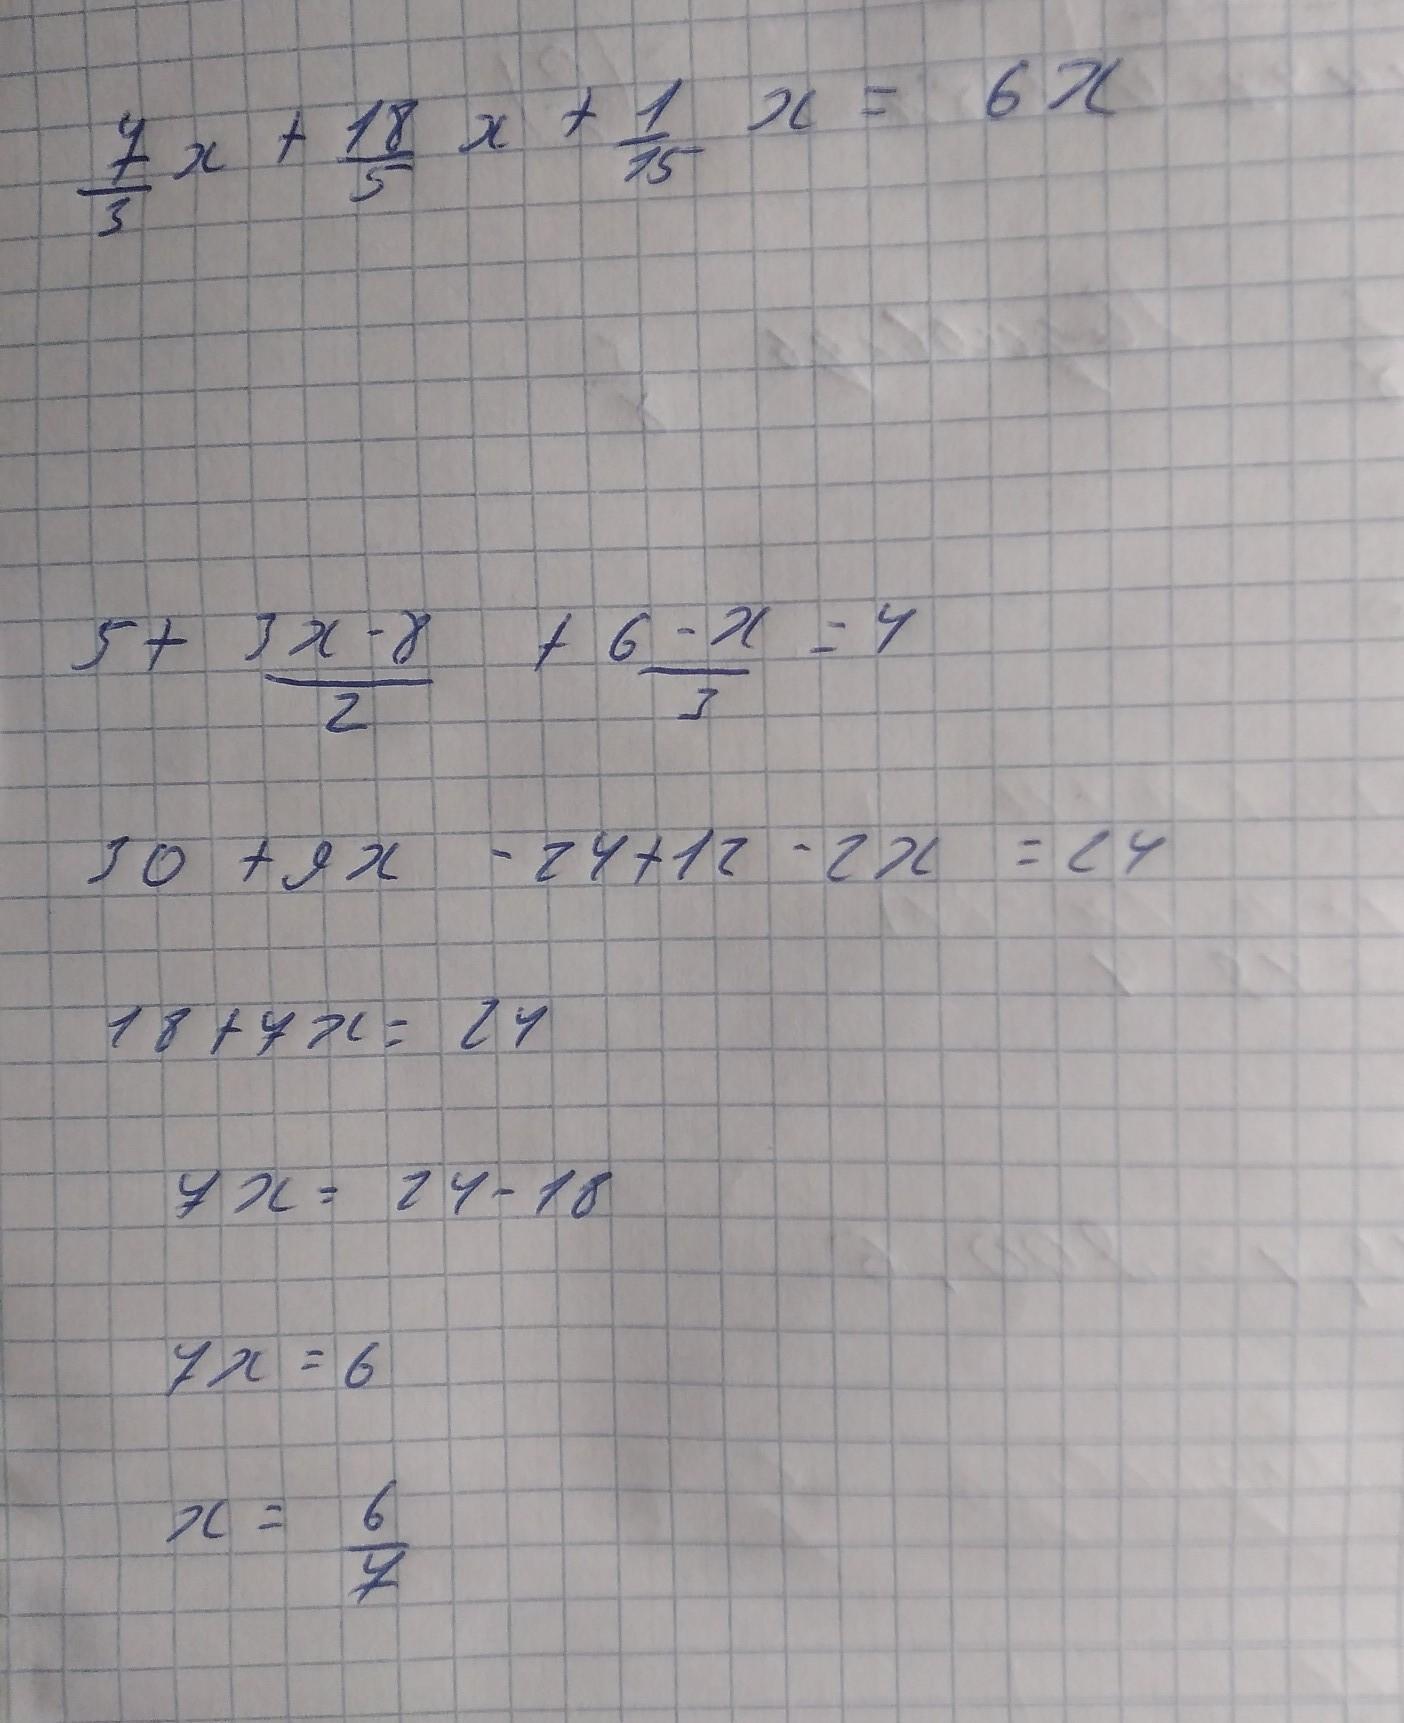 7/3 x + 18/5 x + 1/15 x = 6x
5 + (3x - 8)/2 + (6 - x)/3 = 4
30 + 9x - 24 + 12 - 2x = 24
18 + 7x = 24
7x = 24 - 18
7x = 6
x = 6/7